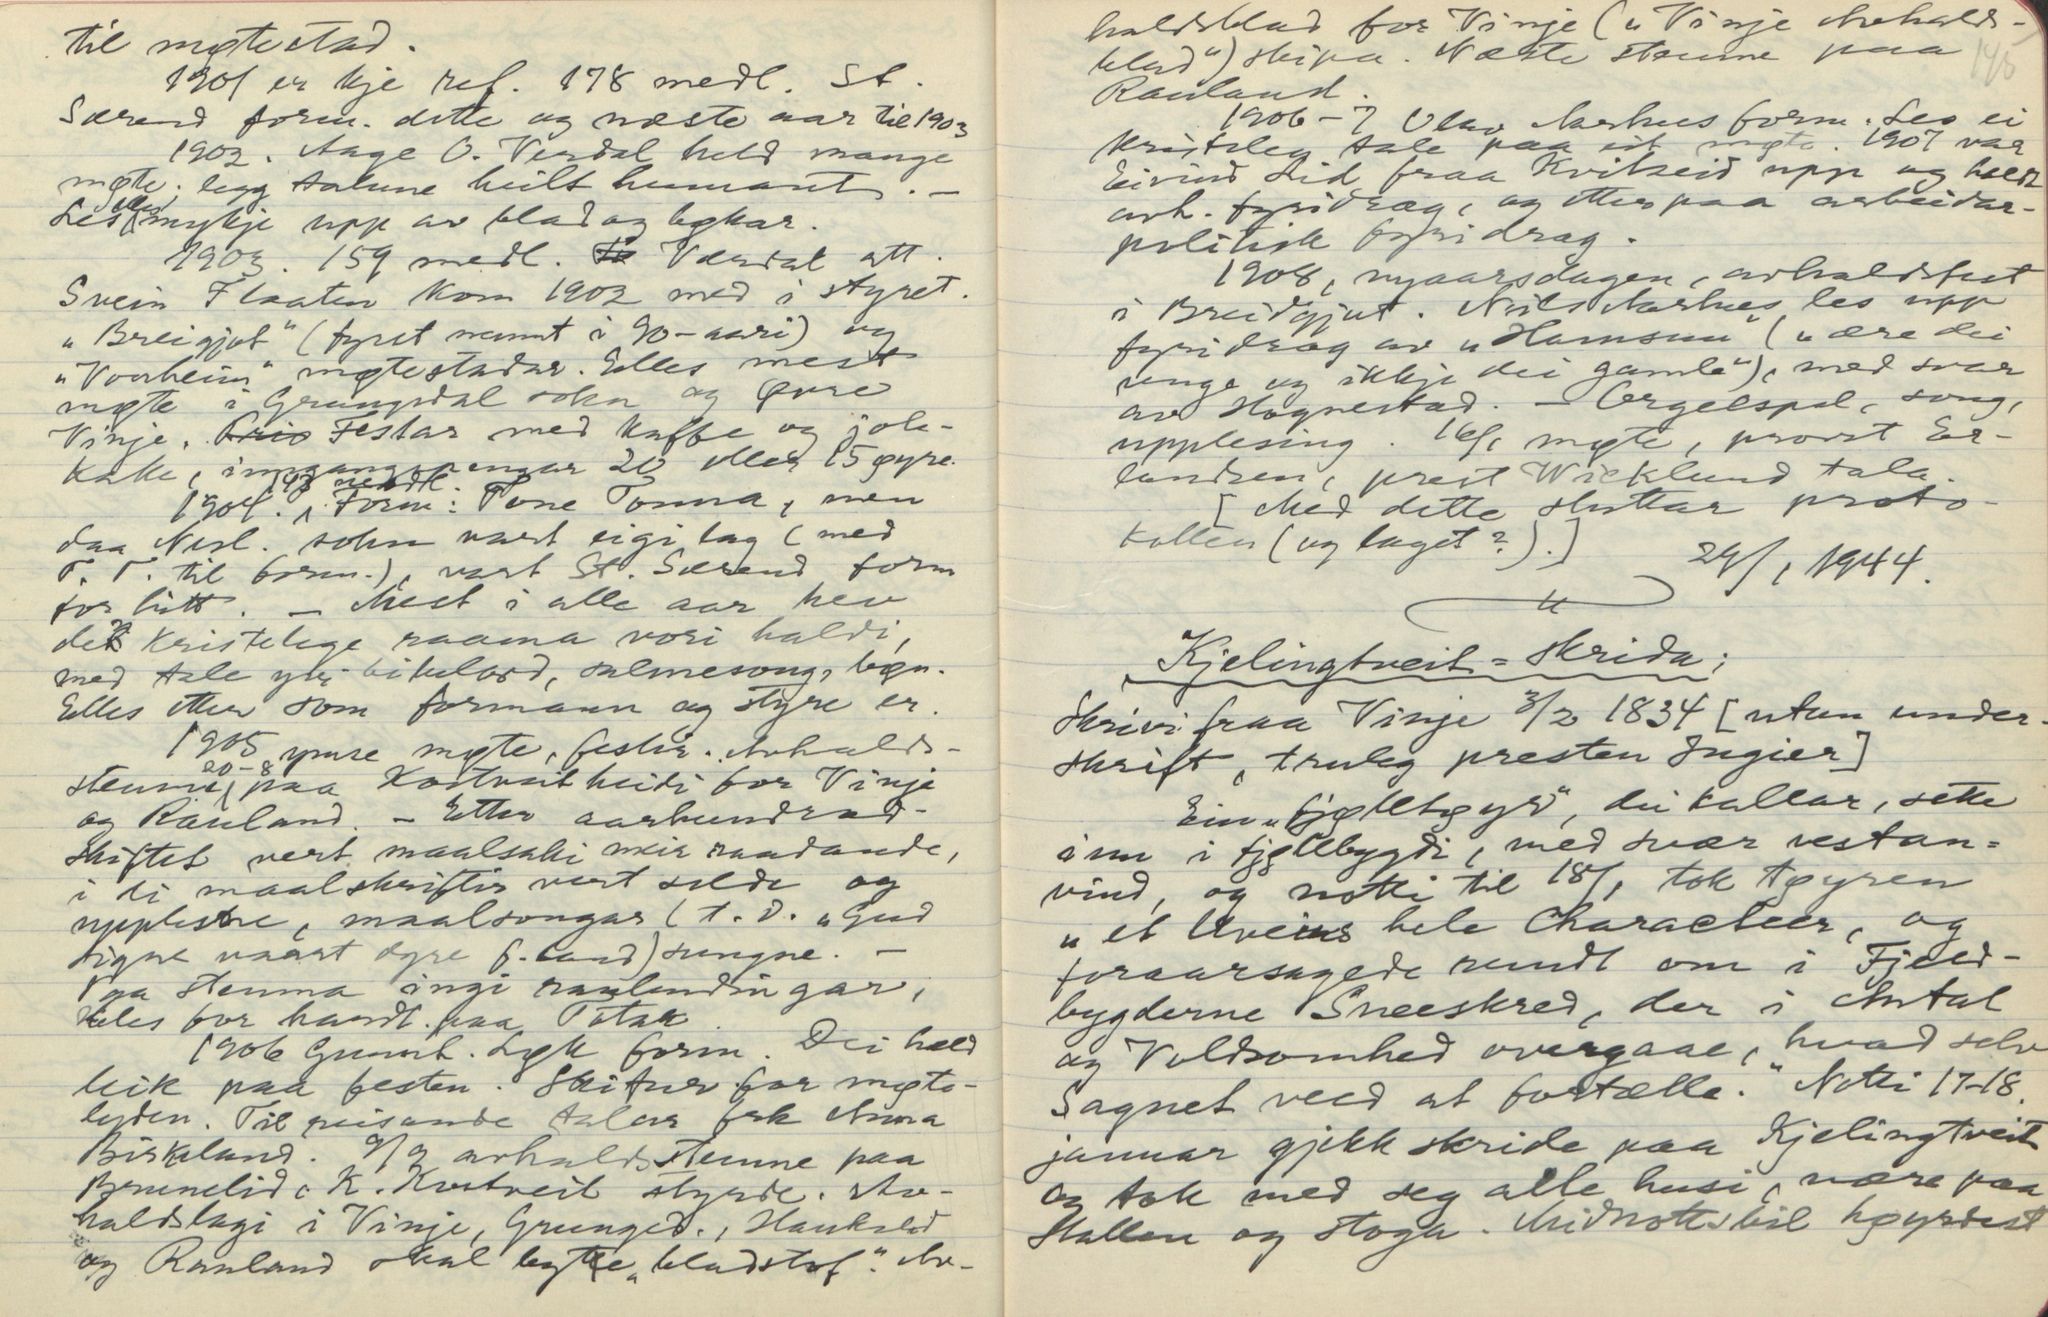 til møtestad.
1901 er kje ref. 178 medl. St.
Særend form. dette og næste aar til 1903
1902. Aage O. Verdal held mange
møte, legg talune heilt humant. –
Les elles mykje upp av blad og bøkar.
1903. 159 medl. Værdal att.
Svein Flaaten kom 1902 med i styret.
„Breigjot“ (fyrst nemnt i 90-aari) og
„Vonheim“ møtestadar. Elles mest
møte i Grungedal sokn og øvre
Vinje. Festar med kaffe og jole-
kake, inngangspengar 20 eller 15 øyre.
1904. 93 medl. Form: Tone Tonna, men
daa Nesl. sokn vart eigi lag (med
T. T. til form.), vart St. Særend form
for hitt. – Mest i alle aar hev
dei kristelege raama vori haldi,
med tale yvi bibelord, salmesong, bøn.
Elles etter som formann og styre er.
1905 ymse møte, festir. Avhalds-
stemne 20-8 paa Kostveitheidi for Vinje
og Rauland. – Etter aarhundrad-
skiftet vert maalsaki meir raadande,
i di maalskriftir vert selde og
upplestne, maalsongar (t. d. „Gud
signe vaart dyre f. land) sungne. –
Paa stemna ingi raulendingar,
bles for hardt paa Totak.
1906 Gunnl. Løk form. Dei held
leik paa festen. Skitur for møte-
lyden. Til reisande talar frk Anna
Birkeland. 9/9 avhaldsstemne paa
Brunelid. K. Kostveit styrde. Av-
haldslagi i Vinje, Grunged., Haukeld
og Rauland skal bytte „bladstof“. Av-
haldsblad for Vinje („Vinje Avhalds-
blad“) skipa. Næste stemne paa
Rauland.
1906-7 Olav Aarhus form. Les ei
kristeleg tale paa eit møte. 1907 var
Eivind Lid fraa Kviteseid upp og heldt
avh. fyridrag, og etterpaa arbeidar-
politisk fyridrag.
1908, nyaarsdagen, avhaldsfest
i Breidgjut. Nils Aarhus les upp
fyridrag av „Hamsun“ („ære dei
unge og ikkje dei gamle“), med svar
av Hognestad. – Orgelspel, song,
upplesing. 16/1 møte, prost Er-
landsen, prest Wicklund tala.
[Med dette sluttar proto-
kollen (og laget?).]
24/1 1944.
Kjelingtveit-skrida:
Skrivi fraa Vinje 3/2 1834 [utan under-
skrift, truleg presten Ingier]
Ein „fjølltøyr“, dei kallar, sette
inn i fjøllbygdi, med svær vestan-
vind, og notti til 18/1 tok tøyren
„et Uveirs hele Characteer, og
foraarsagede rundt om i Fjeld-
bygderne Sneeskred, der i Antal
og Voldsomhed overgaae, hvad selv
Sagnet veed at fortælle.“ Notti 17-18.
januar gjekk skride paa Kjelingtveit
og tok med seg alle husi, nære paa
stallen og stoga. Midnotts bil høyrdest